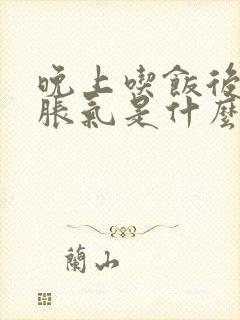 晚上喫飯後
脹氣是什麼
蘭山